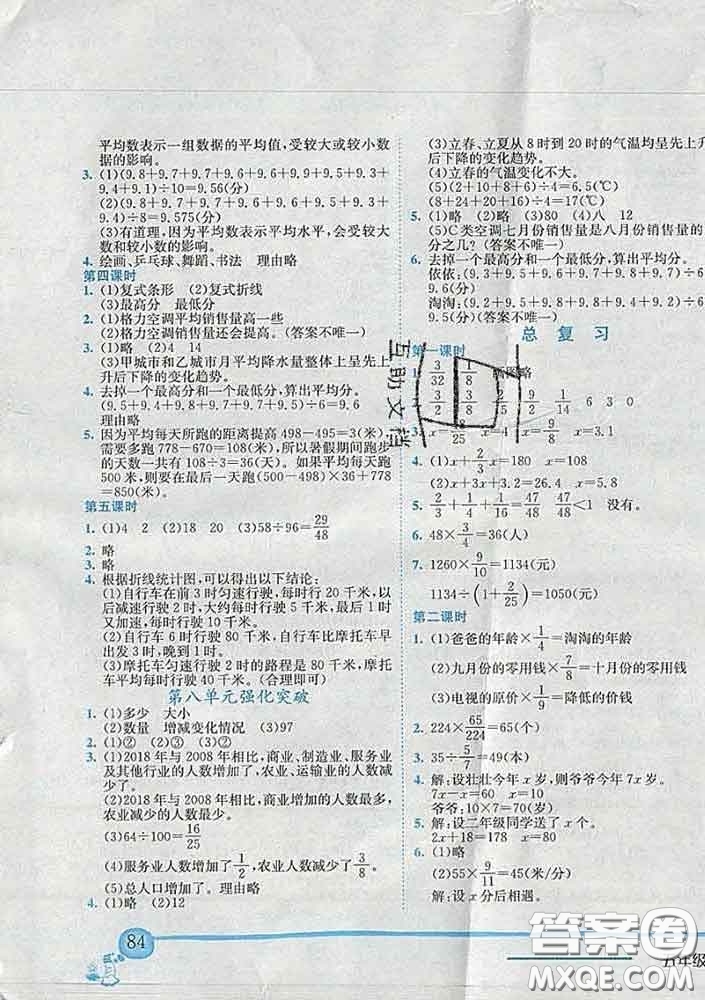 平均数表示一组数据的平均值,受较大或较小数
据的影响。
3. (1)(9.8+9.7+9.7+9.6+9.6+9.9+9.5+9.3+
9.4+9.1)÷10=9.56(分)
(2)(9.8+9.7+9.7+9.6+9.6+9.5+9.3+
9.4)÷8=9.575(分)
(3)有道理,因为平均数表示水平,会受较大
数和较小数的影响。
4. 绘画、乒乓球、舞蹈、书法 理由略
第四课时
1. (1)复式条形 (2)复式折线
(3)最高分 最低分
2. (1)格力空调平均销售量高一些
(2)格力空调销售量还会提高。(答案不唯一)
3. (1)略 (2)4 14
(3)甲城市和乙城市月平均降水量整体上呈先上
升后下降的变化趋势。
4. 去掉一个最高分和一个最低分,算出平均分。
(9.5+9.4+9.6+9.7+9.7+9.7)÷6=9.6(分)
理由略
5. 因为平均每天所跑的距离提高498-495=3(米),
需要多跑778-670=108(米),所以暑假期间跑步
的天数一共有108÷3=36(天)。如果平均每天跑
500米,则要在最后一天跑(500-498)×36+778
=850(米)。
第五课时
1. (1)4 2 (2)18 20 (3)58÷96=29/48
2. 略
3. 略
4. 根据折线统计图,可以得出以下结论:
(1)自行车在前3时匀速行驶,每时行20千米,以
后减速行驶2时,大约每时行驶5千米,最后1时
又加速,每时行10千米。
(2)自行车6时行驶80千米,自行车比摩托车早
出发3时,晚到1时。
(3)摩托车匀速行驶2时的路程是80千米,摩托
车平均每时行驶40千米。(合理即可)
第八单元强化突破
1. (1)多少 大小
(2)数量 增减变化情况 (3)97
2. (1)② (2)③ (3)②
3. (1)2018年与2008年相比,商业、制造业、服务业
及其他行业的人数增加了,农业、运输业的人数减
少了。
(2)2018年与2008年相比,商业增加的人数最多,
农业减少的人数最少。
(3)64÷100=16/25
(4)服务业人数增加了1/2,农业人数减少了3/8。
(5)总人口增加了。理由略
4. (1)略 (2)12
84
(3)立春、立夏从8时到20时的气温均呈先上升
后下降的变化趋势。
(4)立春的气温变化不大。
(5)(2+10+8+6)÷4=6.5(℃)
(8+24+20+16)÷4=17(℃)
5. (1)略 (2)略 (3)80 (4)八 12
(5)C类空调七月份销售量是八月份销售量的
分之几?(答案不唯一)
6. 去掉一个最高分和一个最低分,算出平均分。
依依:(9.3+9.6+9.5+9.6+9.6+
淘淘:(9.2+9.5+9.6+9.4+9.5+
9.5(分)(答案不唯一)
总复习
第一课时
1. 3/32 1/8 略
2. 3/2 3/8 2/15 9/2 1/14 6 3 0
3. x=8/25 x=4 x=9/8 x=3.1
4. (1)x+2/3x=180 x=108
(2)x+3x=9.2+x x=
5. 2/3+1/4+1/16=47/48 47/48<1 没有。
6. 48×3/4=36(人)
7. 1260×9/10=1134(元)
1134÷(1+2/25)=1050(元)
第二课时
1. (1)爸爸的年龄×1/4=淘淘的年龄
(2)九月份的零用钱×7/8=十月份的零用钱
(3)电视的原价×1/9=降低的价钱
2. 224×65/224=65(个)
3. 35÷5/7=49(本)
4. 解:设壮壮今年x岁,则爷爷今年7x岁。
7x-x=60 x=10
爷爷:10×7=70(岁)
5. 解:设二年级同学送了x个。
2x+18=118 x=50
6. (1)略
(2)55×9/11=45(米/分)
解:设x分后相遇。
五年级
互助文档
答案圈
MXQE.COM